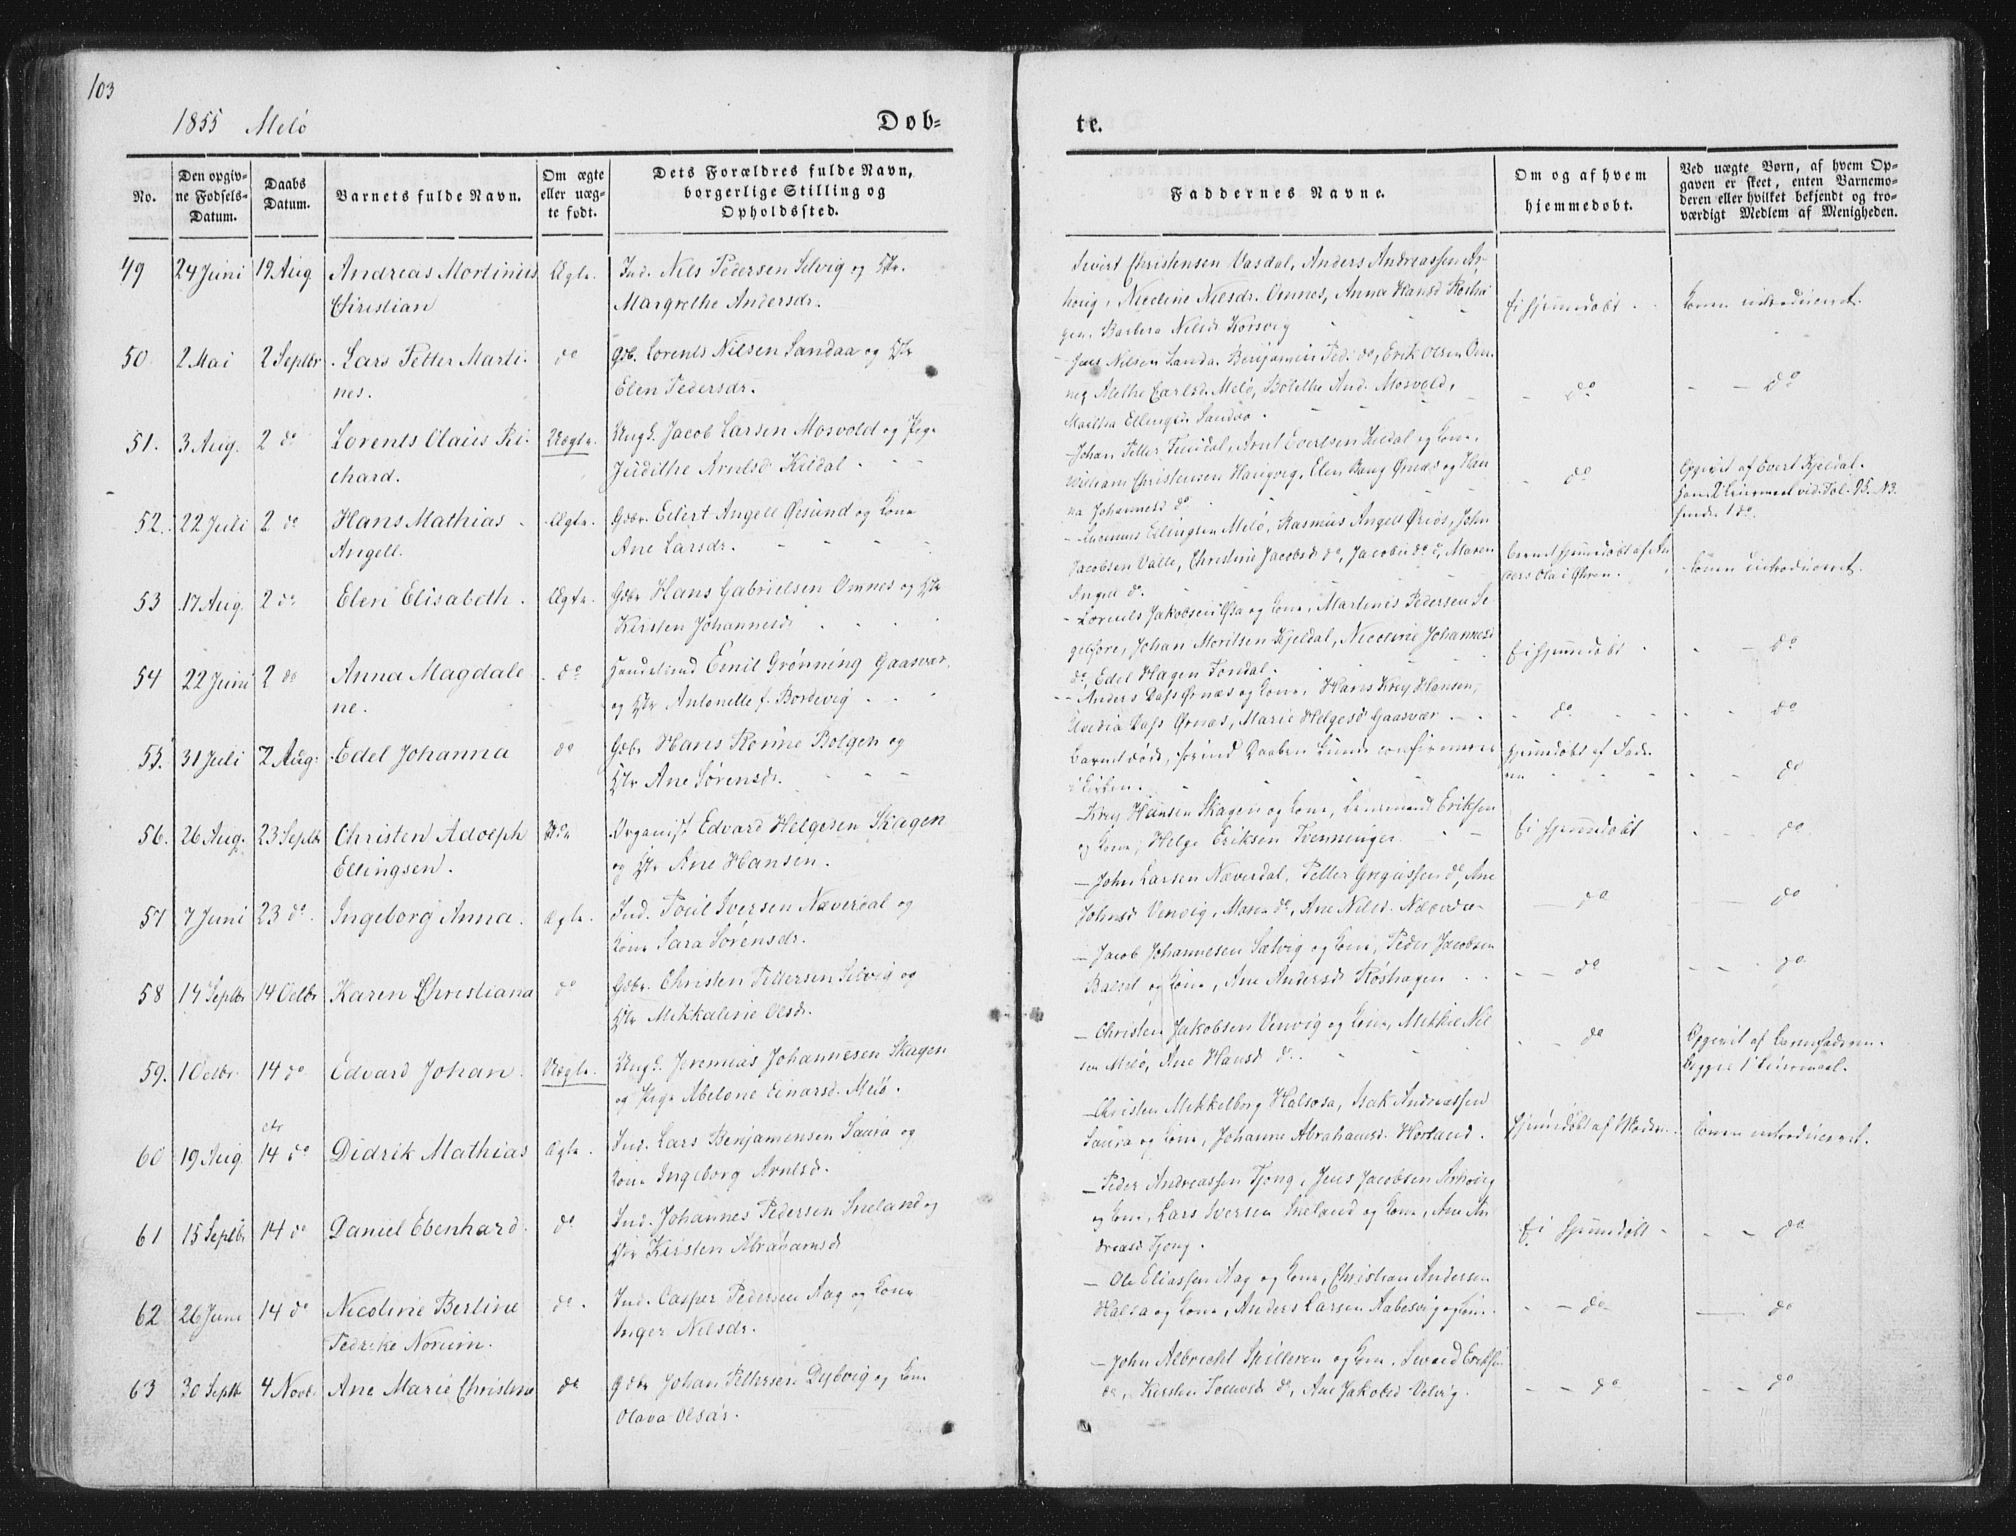 103
1855 Melö
Døb-
te.
No.
Den opgiv-
ne Fødsels-
Datum.
Daabs
Datum.
Barnets fulde Navn.
Om ægte
eller uæg-
te født.
Dets Forældres fulde Navn,
borgerlige Stilling og
Opholdssted.
Faddernes Navne.
Om og af hvem
hjemmedøbt.
Ved uægte Børn, af hvem Op-
gaven er skeet, enten Barnemo-
deren eller hvilket bekjendt og tro-
værdigt Medlem af Menigheden.
49 24 Juni 19 Aug Andreas Mortinus Ægte. Ind. Nils Pedersen Selvig og Hstr.
Christian Margrethe Andersdr.
Sivert Christensen Vasdal, Anders Andreassen Ar-
hovig, Nicoline Nilsdr. Omnes, Anna Hansd Roshagen, Barbera Nilsd Korsvig
Ei hjemdøbt. Konen introduceret.
50 2 Mai 2 Septbr Lars Petter Marti- do Gdb. Lorents Nilsen Sandaa og Hstr
nes. Elen Pedersdr.
Jens Nilsen Sanda, Benjamin Ped. do, Erik Olsen Om-
nes, Methe Carlsd. Melö, Bolethe And. Mosvold,
Martha Ellingsd Sandaa.
do do
51. 3 Aug. 2 do Lorents Olaus Ri- Uægte. Ungk. Jacob Larsen Mosvold og Pige
chard. Judithe Arntsd Kildal
Johan Petter Fundal, Arnt Evertsen Kildal og Kone,
William Christensen Haugvig, Elen Bang Ørnæs og Han-
na Johannesd do
do Opgivet af Evert Kjeldal.
hans 2 Leiermaal vid. Fol. 95. N3.
hendes 1 do.
52. 22 Juli 2 do Hans Mathias Ægte. Gdbr. Eilert Angell Øesund og Kone
Angell. Ane Larsdr.
Ellingsen Melö, Rasmus Angell John
Jacobsen Valle, Christine Jacobsd do, Jacobine do, Maren
Angell do.
Barnet hjemdøbt af An-
ders Ola i Øhren. Konen introduceret.
53 17 Aug. 2 do Elen Elisabeth. Ægte. Gdbr Hans Gabrielsen Omnes og Hstr
Kirsten Johannesd.
Lorents Jakobsen Øsa og Kone, Martinus Pedersen Se-
gelfore, Johan Moritsen Kjeldal, Nicoline Johannesd
do, Edel Hagen Fondal.
Ei hjemdøbt do
54 22 Juni 2 do Anna Magdale do Handelsmd Emil Grønning Gaasvær,
ne. og Hstr Antonette f. Borkevig
Anders Dass Ørnæs og Kone, Hans Krey Hansen,
Avedia Dass Ørnæs, Marie Helgesd Gaasvær
do do
55. 31 Juli 2 Aug. Edel Johanna do Gdbr Hans Rønne Bolgen og
Hstr Ane Sørensd.
Barnet døde, førend Daaben kunde confirmeres
i Kirken.
Hjemdøbt af Fade-
ren do
56. 26 Aug. 23 Septbr Christen Adolph do Organist Edvard Helgesen Skagen
Ellingsen. og Hstr Ane Hansen.
Krey Hansen Skagen og Kone, Lensmand Eriksen
og Kone, Helge Eriksen
Ei hjemdøbt do
57 7 Juni 23 do Ingeborg Anna. Ægte. Ind. Poul Iversen Næverdal og
Kone Sara Sørensdr.
John Larsen Næverdal, Petter Gregussen do, Ane
Johnsd Venvig, Maren do, Ane Nilsd. Næverda-
do do
58 14 Septbr 14 Octbr Karen Christiana do Gdbr. Christen Pettersen Selvig og
Hstr Mekkaline Olsdr.
Jacob Johannesen Selvig og Kone, Peder Jacobsen
Balset og Kone, Ane Andersd Roshagen
do do
59. 1 Octbr. 14 do Edvard Johan Uægte. Ungk. Jeremias Johannesen Skagen
og Pige Abelone Einarsd. Melö.
Christen Jakobsen Venvig og Kone, Methie Nil-
sen Melö, Ane Hansd do.
do Opgivet af Barnefaderen.
Begges 1ste Leiermaal.
60 19 Aug. 14 do Didrik Mathias Ægte. Ind. Lars Benjaminsen Saura og
Kone Ingeborg Arntsd.
Christen Mekkelborg Halsosa, Isak Andreassen
Saura og Kone, Johanne Abrahamsd. Horland.
Hjemdøbt af Moder. Konen introduceret.
61 15 Septbr 14 do Daniel Ebenhard. do Ind. Johannes Pedersen Sneland og
Hstr Kirsten Abrahamsd
Peder Andreassen Tjong, Jens Jacobsen Arhovig
og Kone, Lars Iversen Sneland og Kone, Ane An-
dreasd Tjong.
Ei hjemdøbt do
62 26 Juni 14 do Nicoline Berline do. Ind. Casper Pedersen Aag og Kone
Pedrike Norum. Inger Nilsdr.
Ole Eliassen Aag og Kone, Christian Andersen
Halsa og Kone, Anders Larsen Aabesvig og Kone.
do do
63 30 Septb 4 Novbr Ane Marie Christine do Gdbr Johan Pettersen Dybvig og Kone
Olava Olsdr.
John Albrecht Spilderen og Kone, Sivard Eriksen
do, Kirsten Toresd do, Ane Jakobsd Valvig.
do do